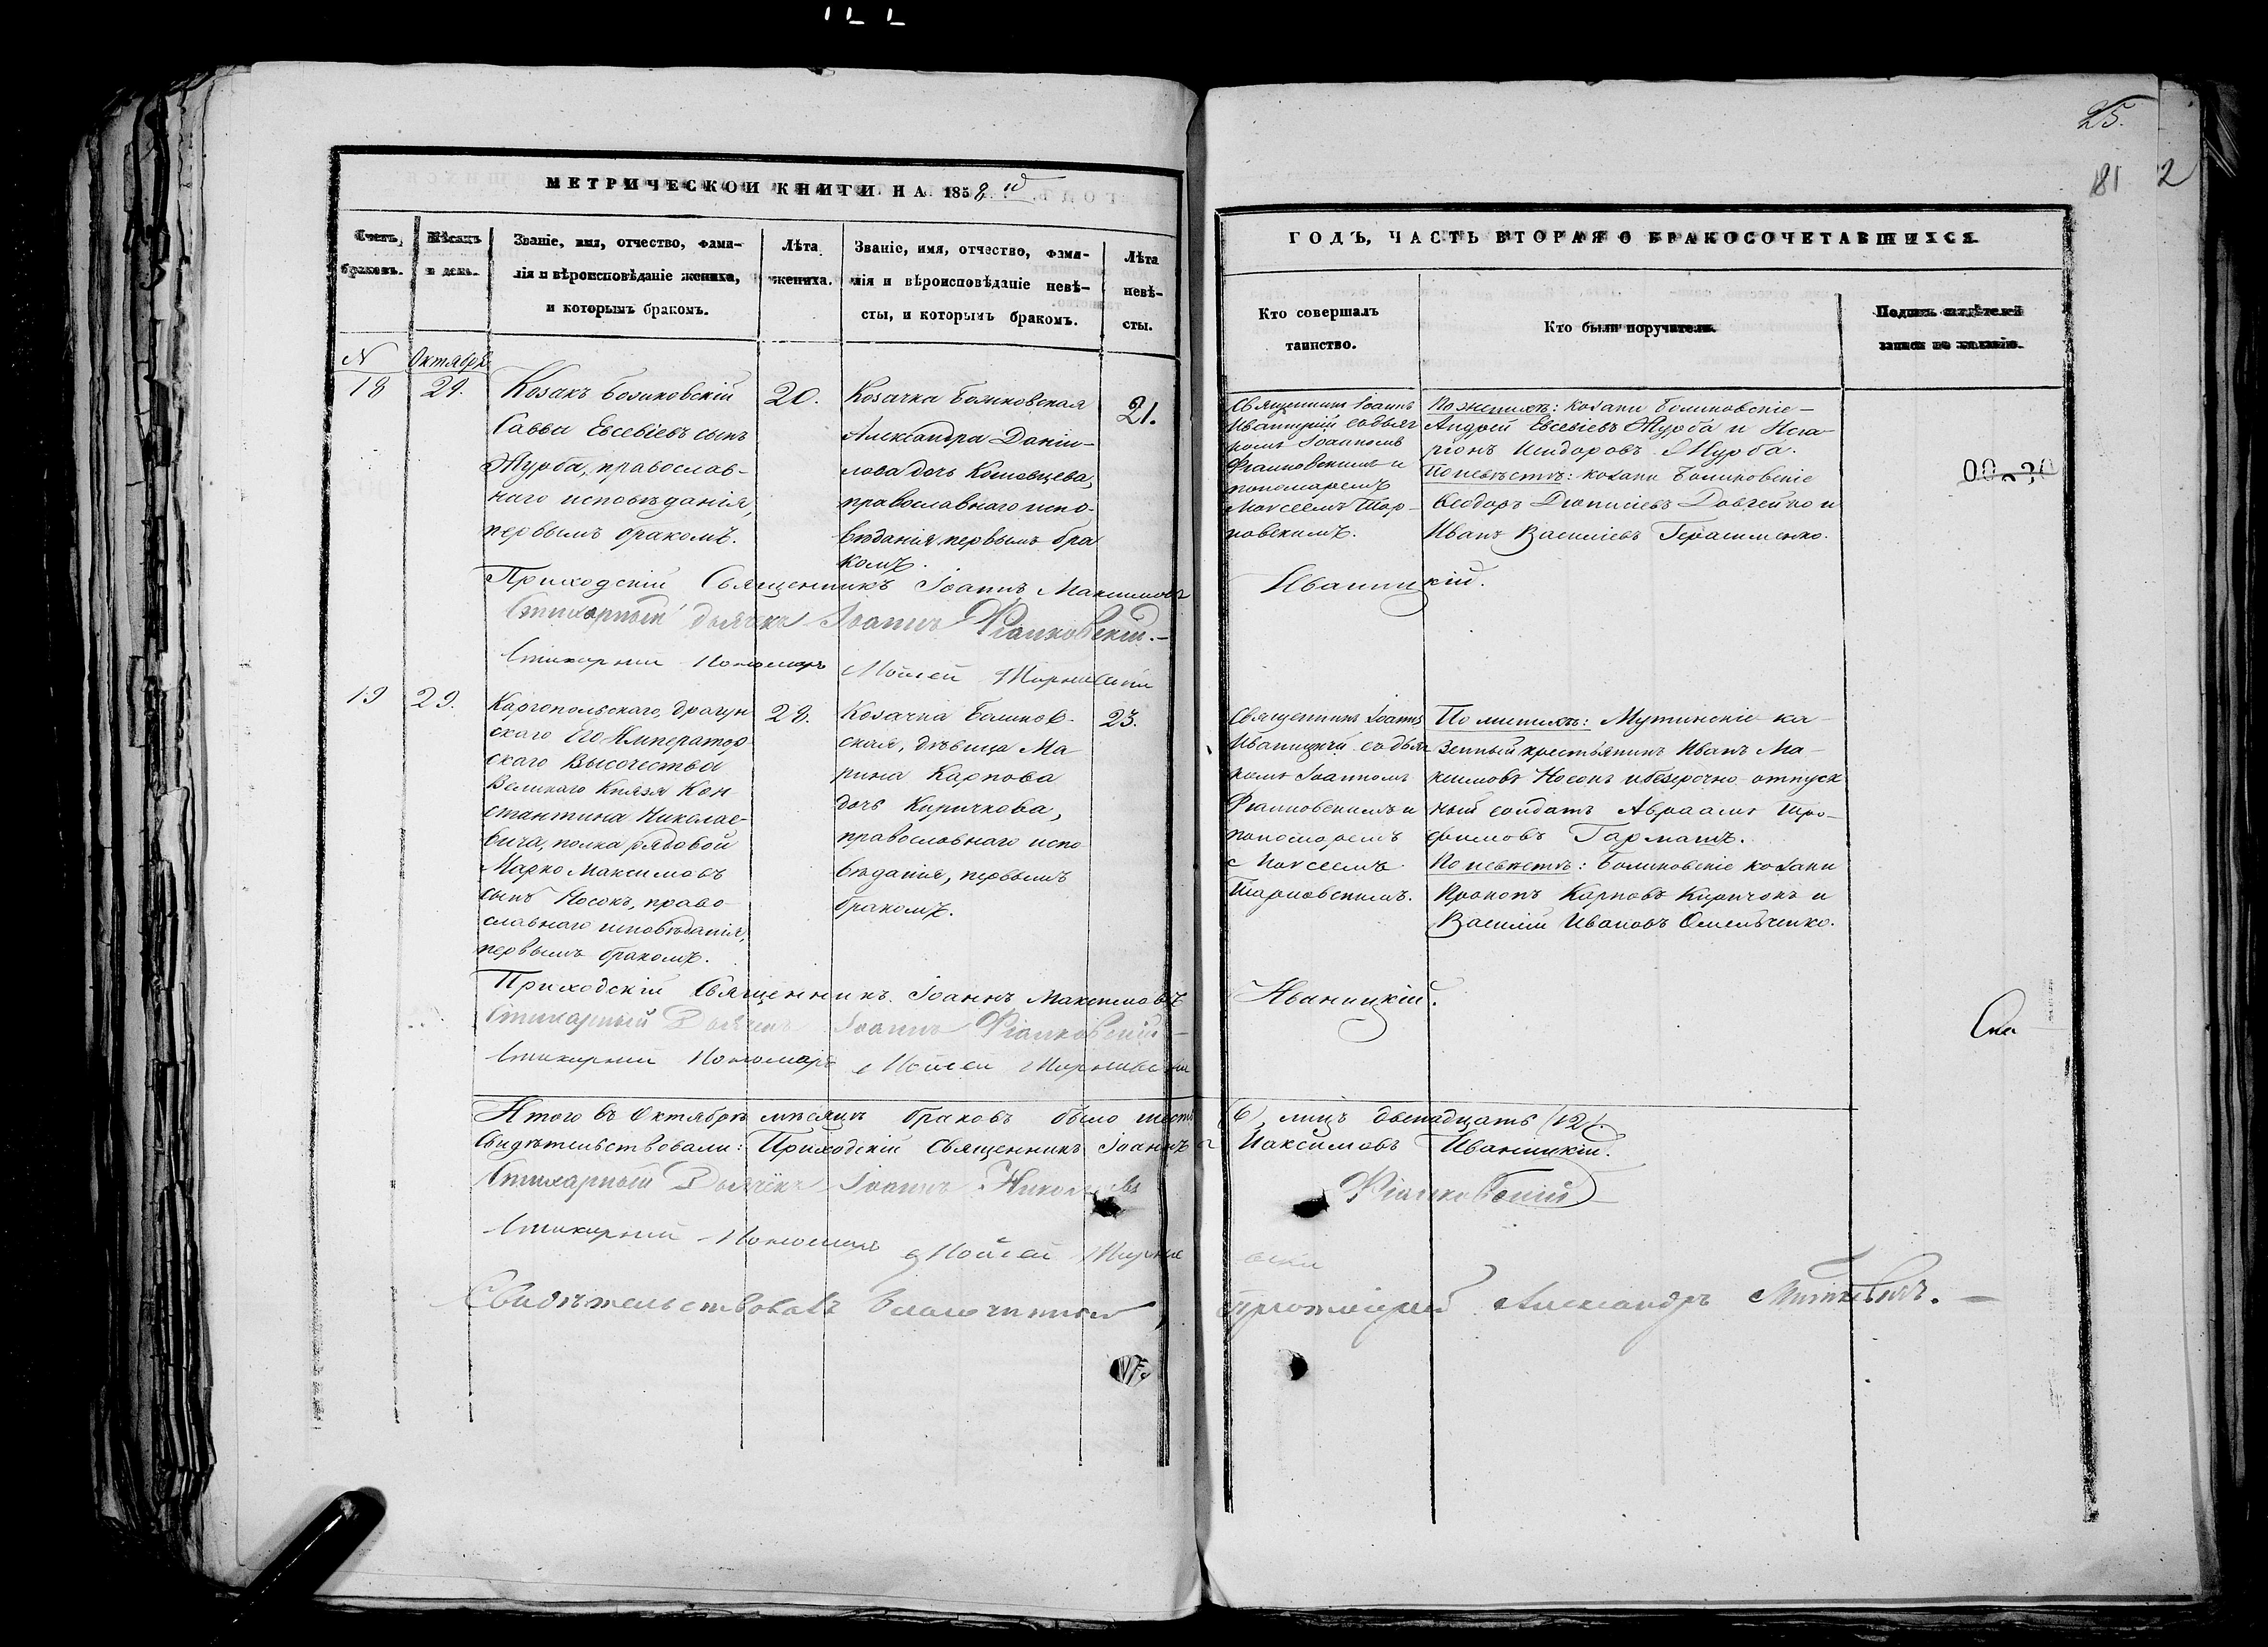 25.
81 2
МЕТРИЧЕСКОЙ КНИГИ НА 1858 й
ГОДЪ, ЧАСТЬ ВТОРАЯ О БРАКОСОЧЕТАВШИХСЯ
Счетъ
браковъ.
Мѣсяцъ
и день.
Званіе, имя, отчество, фами-
лія и вѣроисповѣданіе жениха,
и которымъ бракомъ.
Лѣта
жениха.
Званіе, имя, отчество, фами-
лія и вѣроисповѣданіе невѣ-
сты, и которымъ бракомъ.
Лѣта
невѣ-
сты.
Кто совершалъ
таинство.
Кто были поручатели.
Подпись свидѣтелей
записи по желанію.
N Октябрь
18
29.
Козакъ
Савва Евсевіевъ сынъ
Журба, православ-
наго исповѣданія,
первымъ бракомъ.
20.
Козачка
Александра Даніи-
лова дочь
православнаго испо-
вѣданія первымъ бра
комъ.
21.
Священникъ Іоаннъ
Иваницкій съ дьяч
комъ Іоанномъ
Фіалковскимъ и
пономаремъ
Моѵсеемъ
По женихѣ: козаки
Андрей Евсевіевъ Журба и
Исидоровъ Журба.
По невѣстѣ: козаки
Ѳеодоръ Діонисіевъ и
Иванъ Василіевъ Герасименко.
Приходскій Священникъ Іоаннъ Максимовъ Иваницкій.
Стихарный дьячекъ Іоаннъ Фіалковскій.
Стихарный Пономарь Мойсей
19
29.
Каргопольскаго, драгун
скаго Его Император
скаго Высочества
Великаго Князя Кон
стантина Николае-
вича, полка рядовой
Марко Максимовъ
сынъ Носокъ, право-
славнаго исповѣданія,
первымъ бракомъ.
28.
Козачка
ская, дѣвица Ма
рина Карпова
дочь Киричкова,
православнаго испо
вѣданія, первымъ
бракомъ.
23.
Священникъ Іоаннъ
Иваницкій съ дьяч
комъ Іоанномъ
Фіалковскимъ и
пономаремъ
Моѵсеемъ
По женихѣ: Мутинскіе ка-
зенный крестьянинъ Иванъ Ма-
ксимовъ Носокъ и безсрочно отпуск
ный солдатъ Авраамъ Тро-
фимовъ Гармашъ.
По невѣстѣ: козаки
Прокопъ Карповъ Киричокъ и
Василій Ивановъ Омельченко.
Приходскій Священникъ Іоаннъ Максимовъ Иваницкій.
Стихарный Дьячекъ Іоаннъ Фіалковскій
Стихарный Пономарь Мойсей
Итого въ Октябрѣ мѣсяцѣ браковъ было шесть (6), лицъ двенадцать (12).
Свидѣтельствовали: Приходскій Священникъ Іоаннъ Максимовъ Иваницкій.
Стихарный Дьячекъ Іоаннъ Николаевъ Фіалковскій
Стихарный Пономарь Мойсей
Свидѣтельствовалъ Благочинный, Протоіерей Александръ